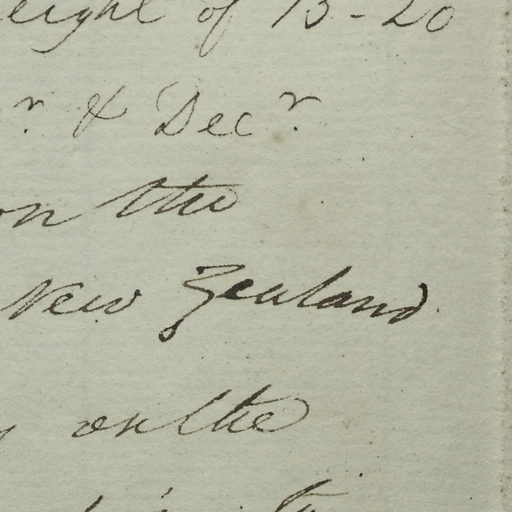 eight of 15-20
r & Decr
on the
New Zealand
on the